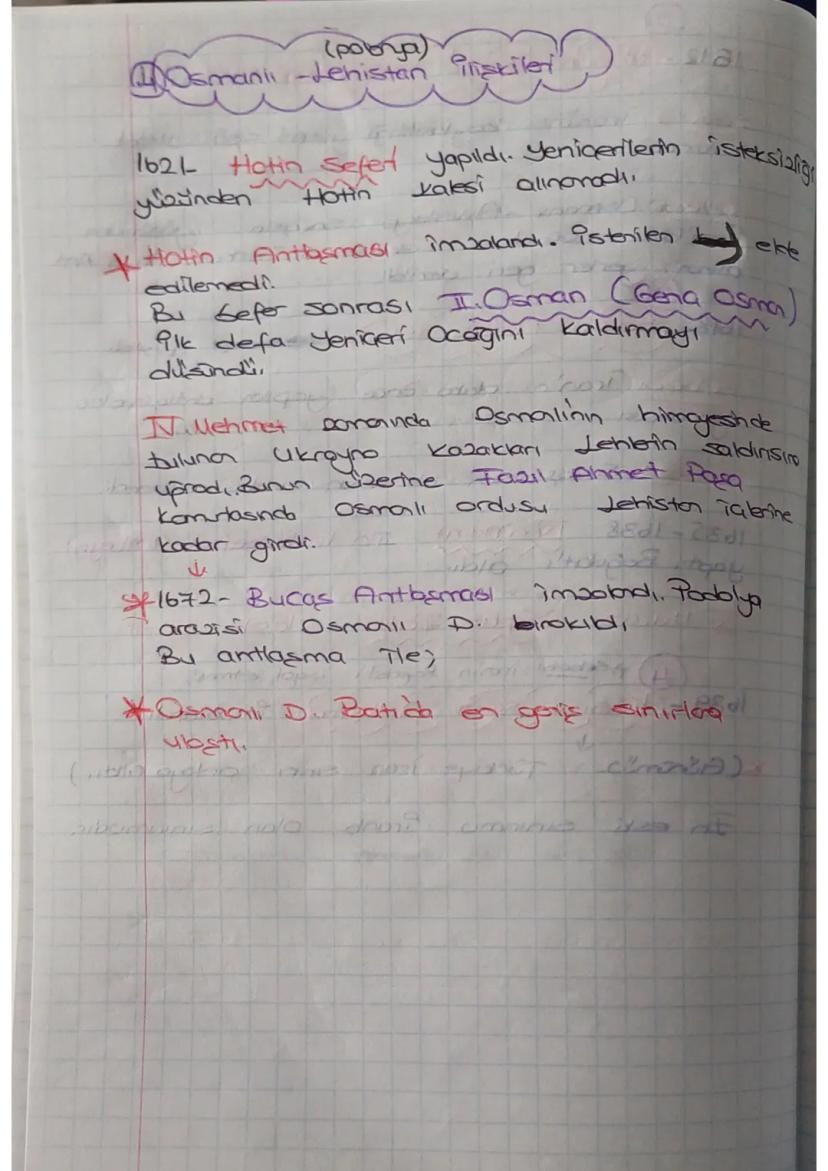 (polonya)
II Osmanlı - Lehistan İlişkileri
1621 Hotin Seferi yapıldı. Yeniçerilerin isteksizliği
yüzünden Hotin kalesi alınamadı.
* Hotin Antlaşması imzalandı. İstenilen elde
edilemedi.
Bu sefer sonrası II. Osman (Genç Osman)
ilk defa Yeniçeri Ocağını kaldırmayı
düşündü.
IV. Mehmet zamanında Osmalı'nın himayesinde
bulunan Ukrayna kazakları Lehlerin saldırısına
uğradı. Bunun üzerine Fazıl Ahmet Paşa
komutasında Osmalı ordusu Lehistan içlerine
kadar girdi.
↓
* 1672 - Bucaş Antlaşması imzalandı. Podolya
arazisi Osmalı D. bırakıldı.
Bu antlaşma ile;
* Osmalı D. Batıda en geniş sınırlara
ulaştı.